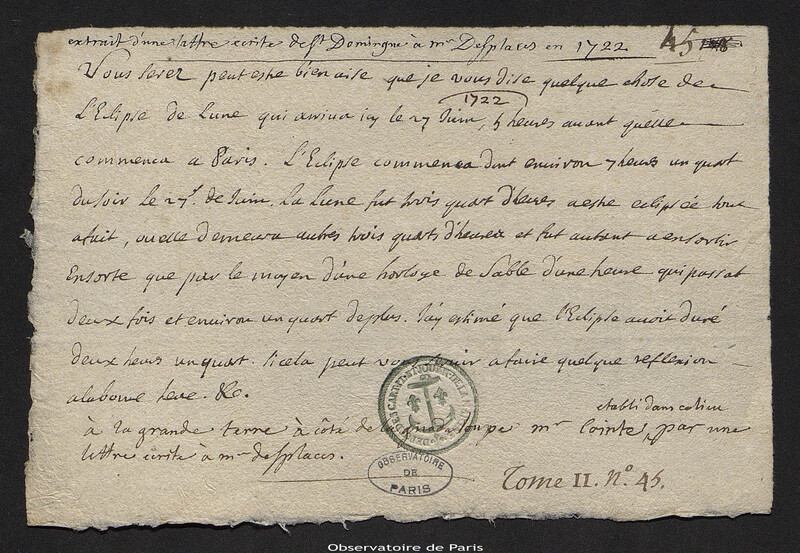 extrait d'une lettre ecrite de St Domingue à mr Desplaces en 1722 45
Vous serez peut estre bien aise que je vous dise quelque chose de
1722
L'Eclipse de Lune qui arriva icy le 27 Juin, 5 heures avant quelle
commenca a Paris. L'Eclipse commenca dont environ 7 heures un quart
du soir le 27e. de Juin. La Lune fut trois quart d'heures a estre eclipsée tout
afait, ou elle demeura autres trois quarts d'heures et fut autant a ensortir
Ensorte que par le moyen d'une horloge de Sable d'une heure qui passat
deux fois et environ un quart de plus. J'ay estimé que l'Eclipse avoit duré
deux heures un quart. si cela peut vous servir a faire quelque reflexion
alabonne heure. &c.
etabli dans ce lieu
à la grande terre à côté de la Guadeloupe mr Cointe, par une
lettre ecrite à mr desplaces.
OBSERVATOIRE
DE
PARIS
Tome II. No. 45.
Observatoire de Paris